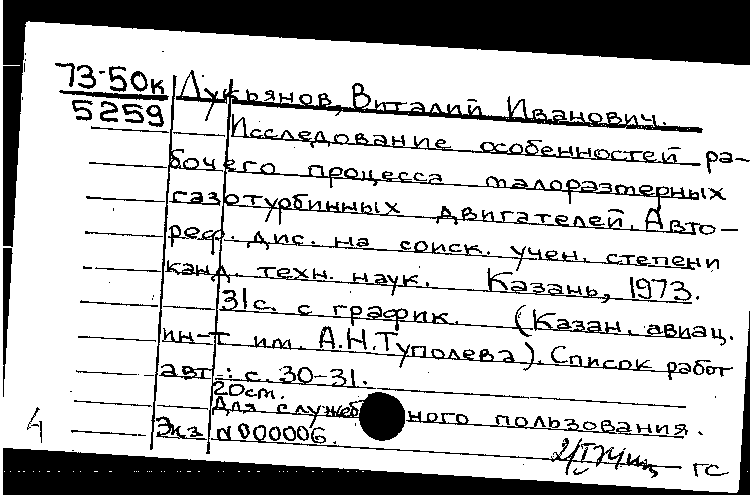 73-50к
5259
Лукьянов, Виталий Иванович.
Исследование особенностей ра-
бочего процесса малоразмерных
газотурбинных двигателей. Авто-
реф. дис. на соиск. учен. степени
канд. техн. наук. Казань, 1973.
31с. с график. (Казан. авиац.
ин-т им. А.Н.Туполева). Список работ
авт.: с. 30-31.
20см.
Для служебного пользования.
Экз N000006.
4
ГС